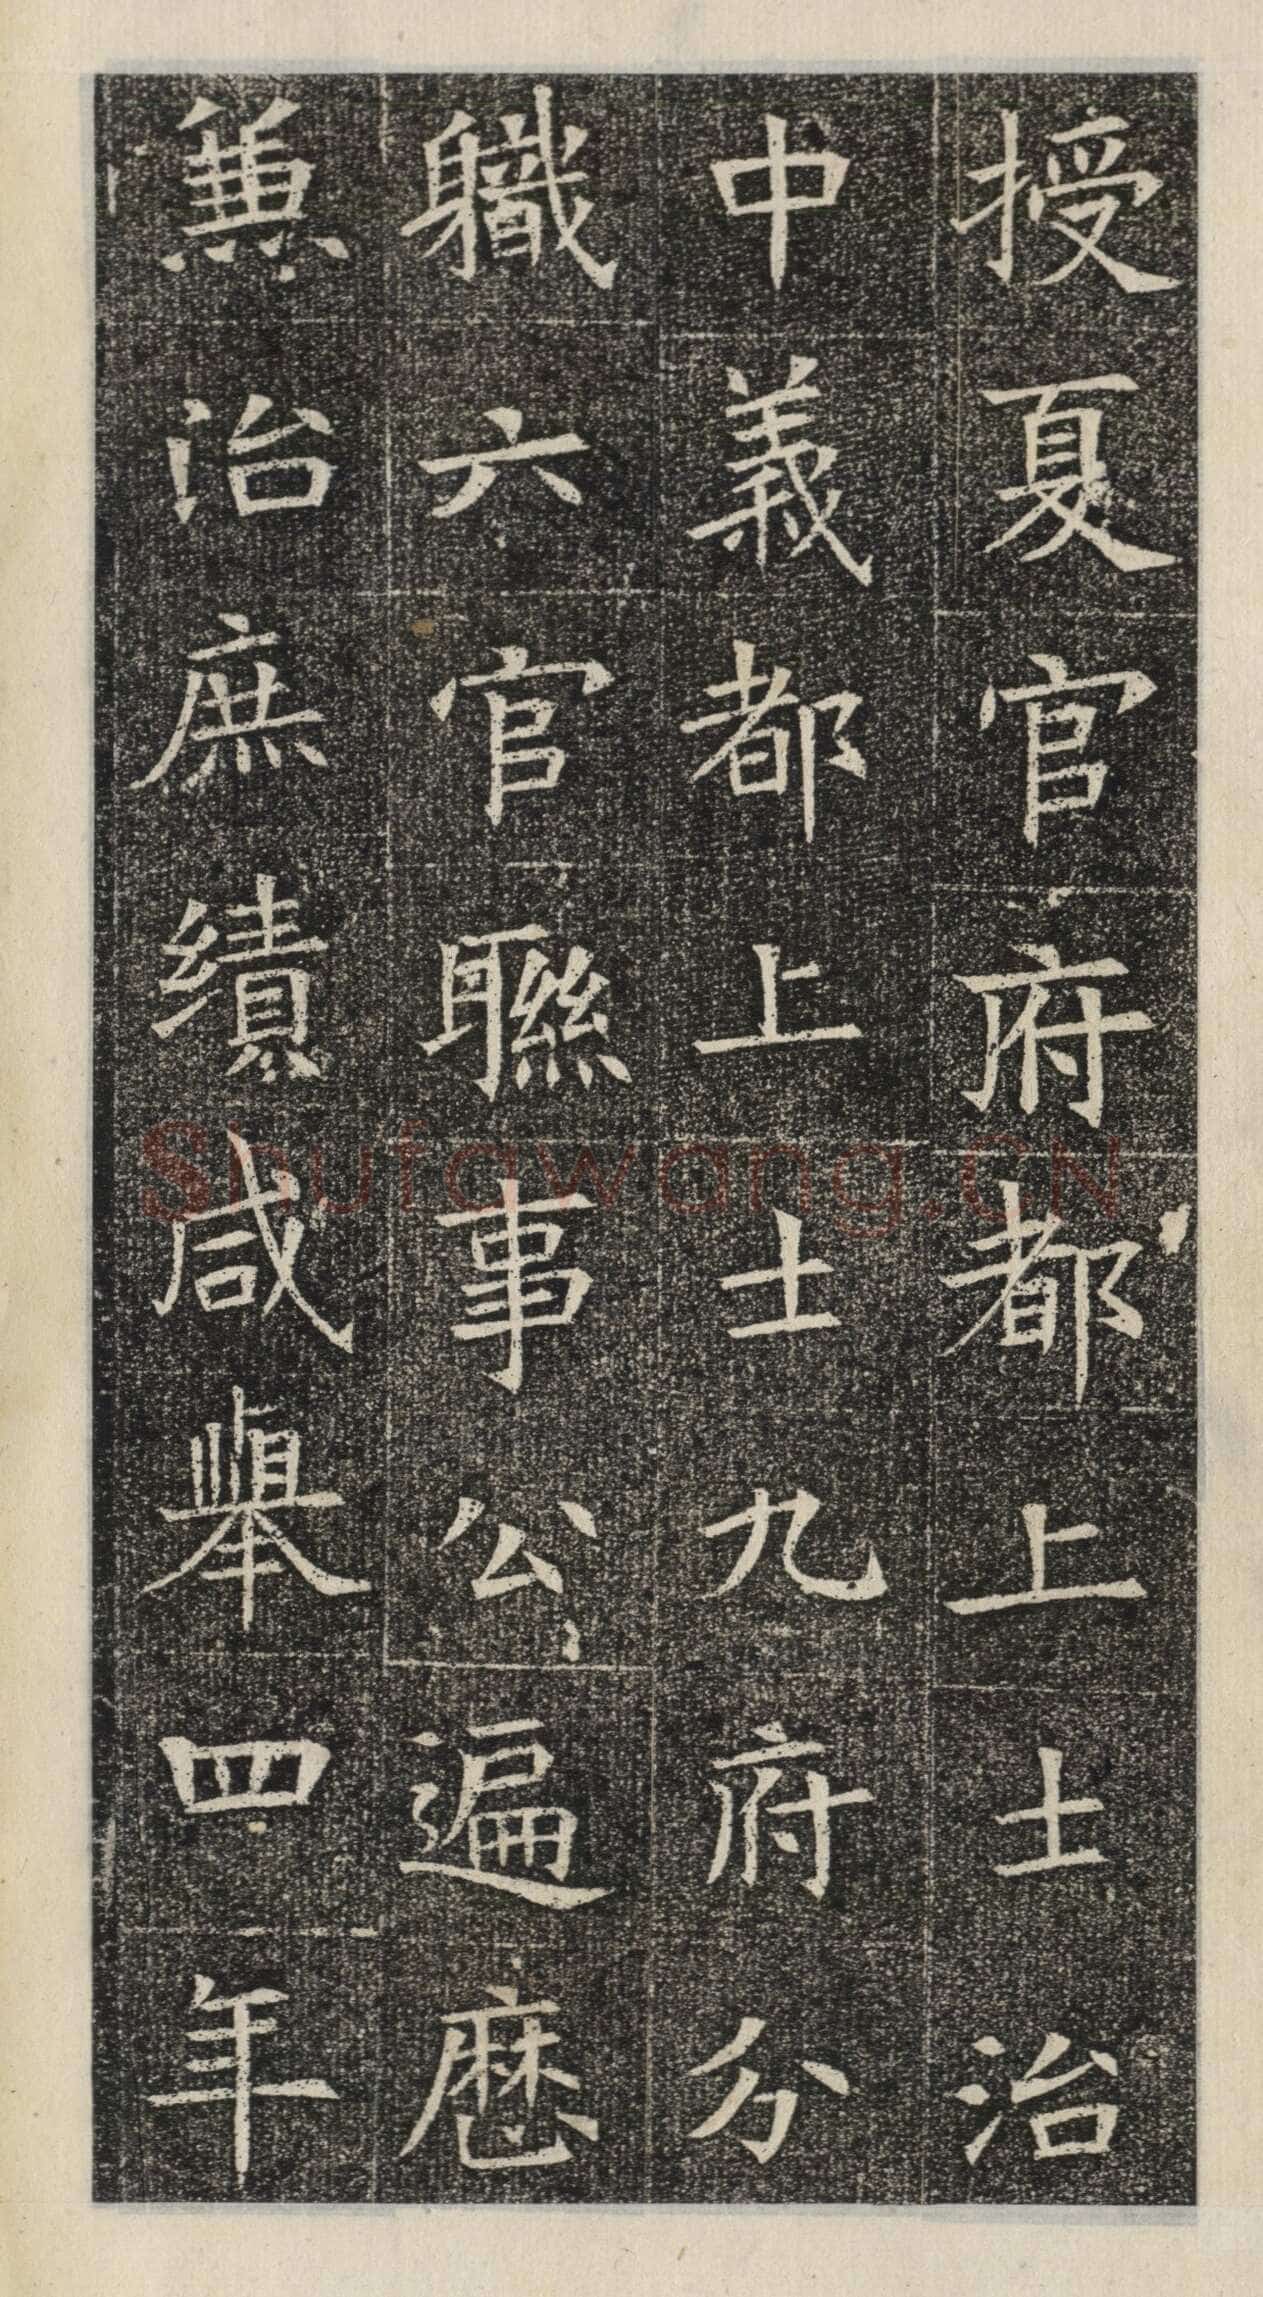 授夏官府都上士治
中義都上士九府分
職六官聯事公遍歷
兼治庶績咸舉四年
Shufawang.CN